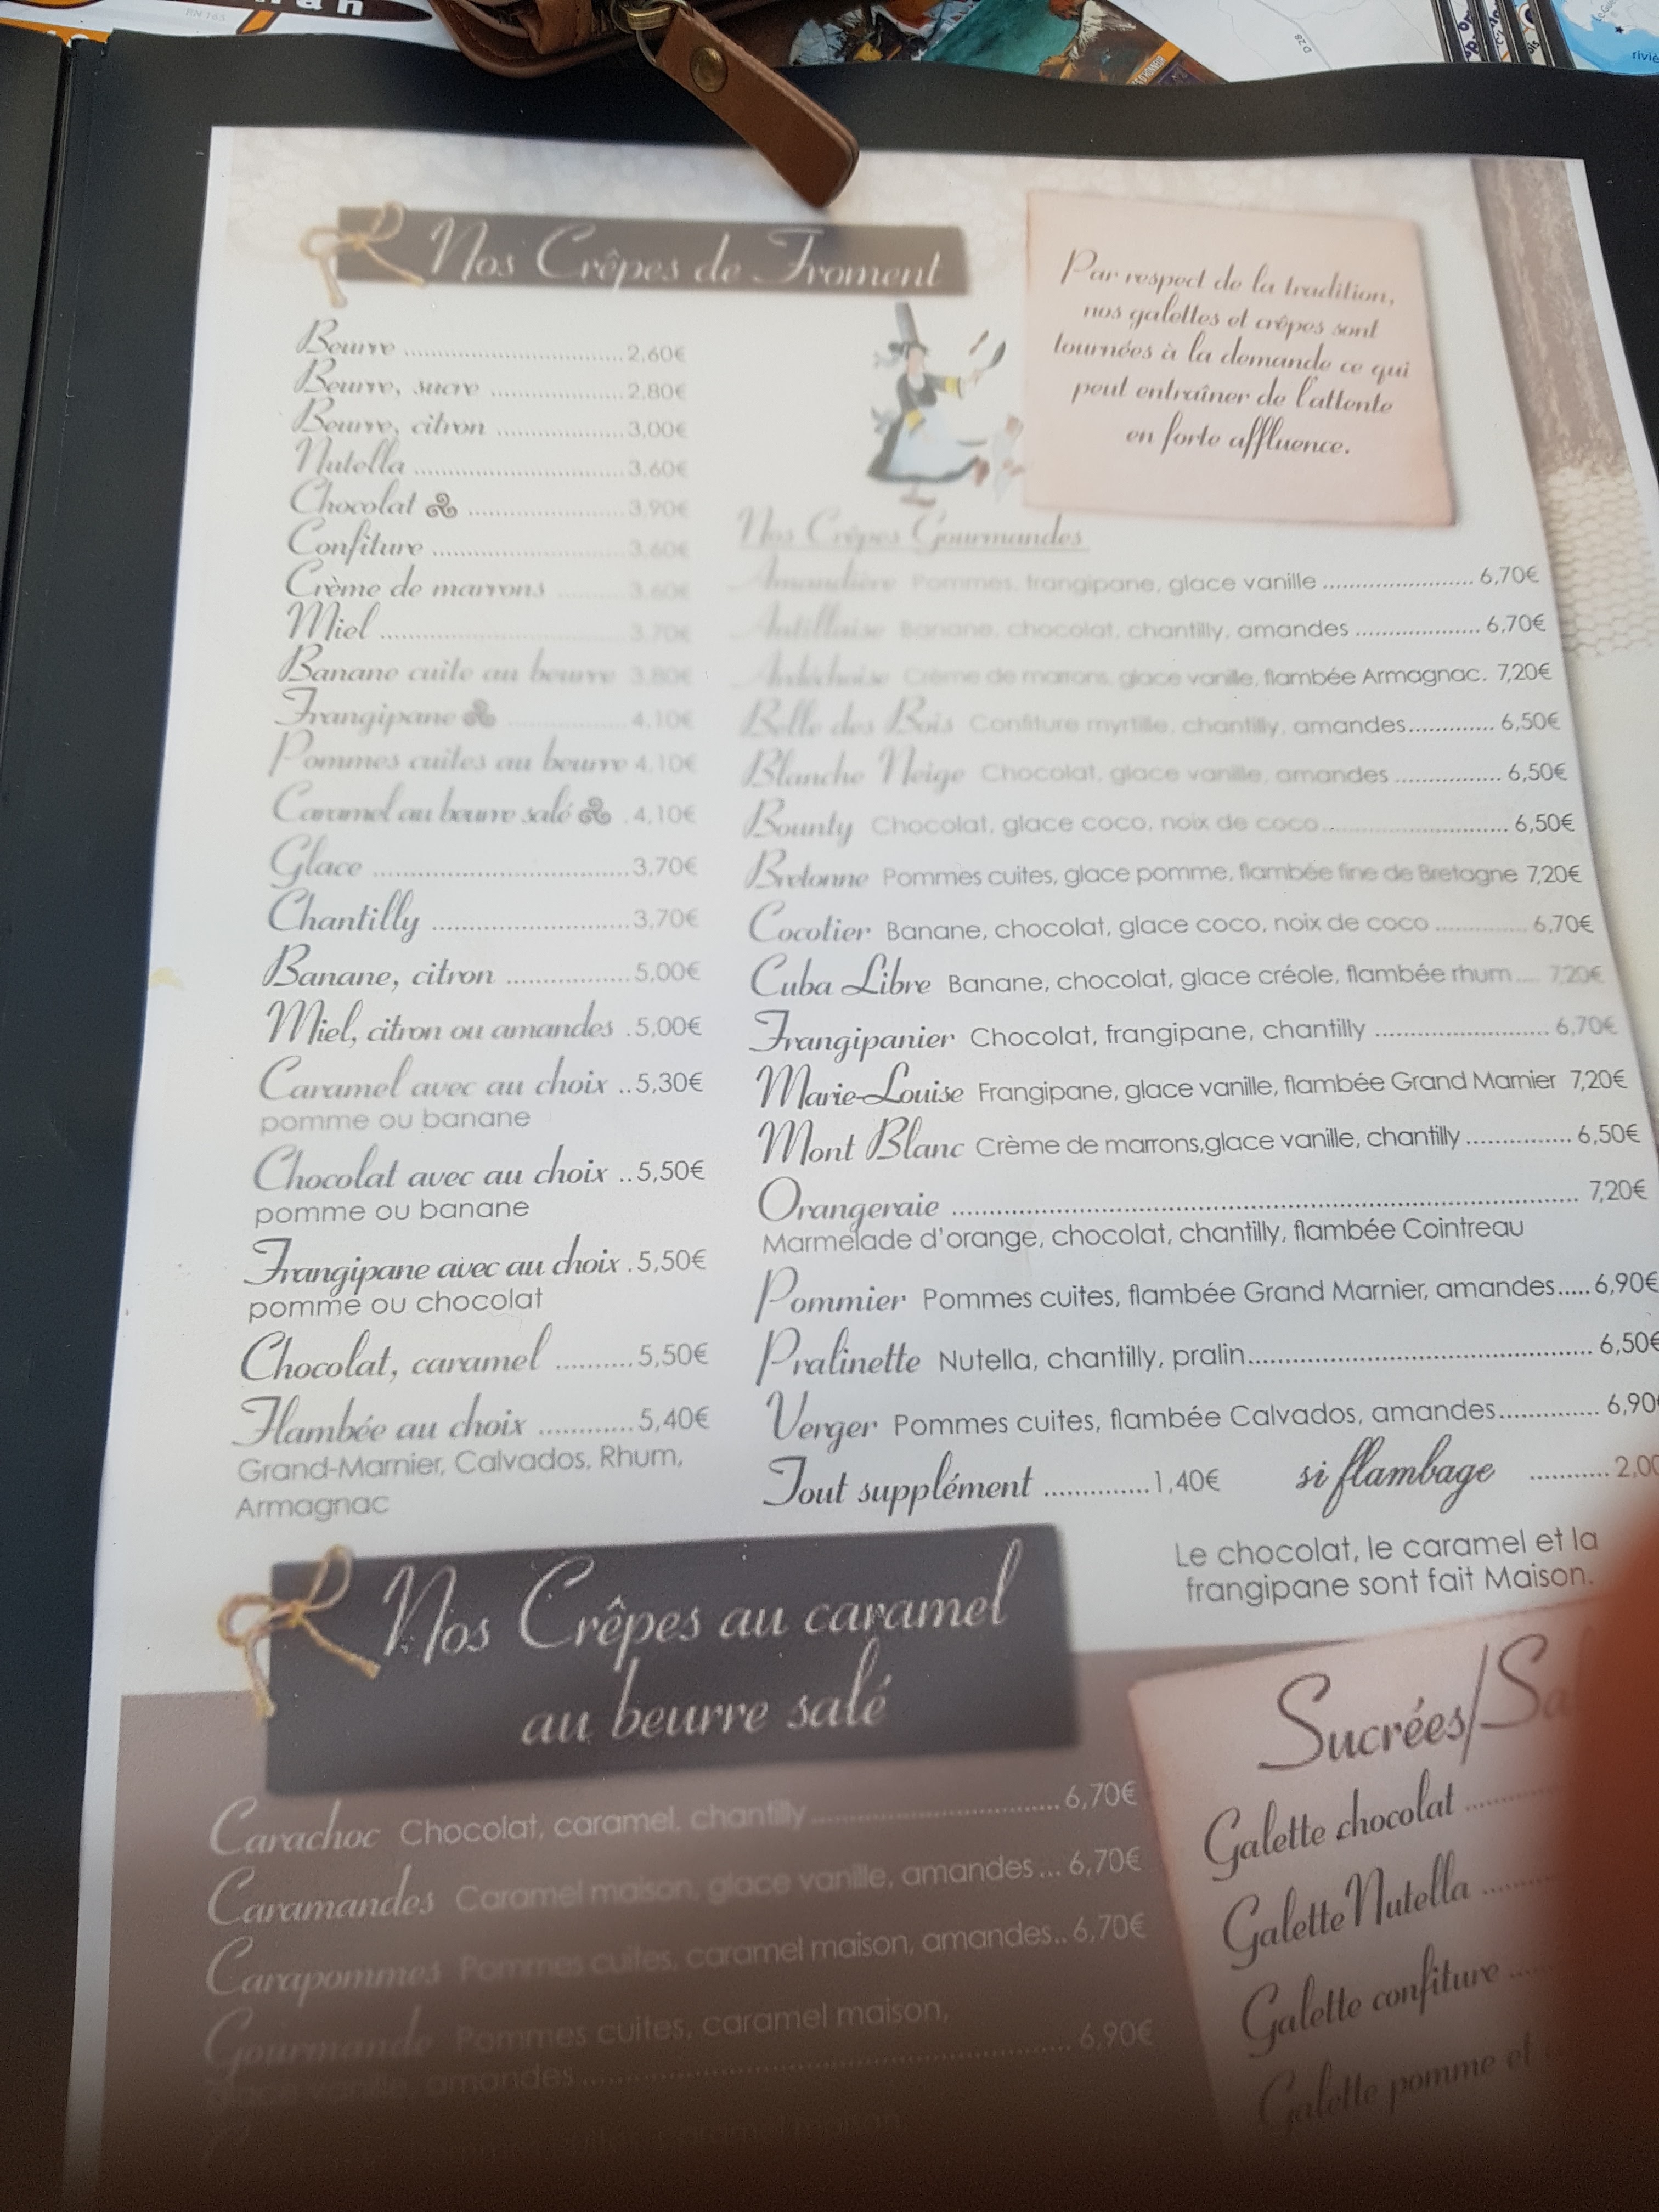 RN 165
D28
riviè
Nos Crêpes de Froment
Par respect de la tradition,
nos galettes et crêpes sont
tournées à la demande ce qui
peut entraîner de l'attente
en forte affluence.
Beurre ............ 2,60€
Beurre, sucre ............ 2,80€
Beurre, citron ............ 3,00€
Nutella ............ 3,60€
Chocolat ............ 3,90€
Confiture ............ 3,60€
Crème de marrons ............ 3,60€
Miel ............ 3,70€
Banane cuite au beurre 3,80€
Frangipane ............ 4,10€
Pommes cuites au beurre 4,10€
Caramel au beurre salé . 4,10€
Glace ............ 3,70€
Chantilly ............ 3,70€
Banane, citron ............ 5,00€
Miel, citron ou amandes . 5,00€
Caramel avec au choix .. 5,30€
pomme ou banane
Chocolat avec au choix .. 5,50€
pomme ou banane
Frangipane avec au choix . 5,50€
pomme ou chocolat
Chocolat, caramel .......... 5,50€
Flambée au choix ............ 5,40€
Grand-Marnier, Calvados, Rhum,
Armagnac
Nos Crêpes Gourmandes
Amandière Pommes, frangipane, glace vanille ............ 6,70€
Antillaise Banane, chocolat, chantilly, amandes ............ 6,70€
Ardéchoise Crème de marrons, glace vanille, flambée Armagnac. 7,20€
Belle des Bois Confiture myrtille, chantilly, amandes ............ 6,50€
Blanche Neige Chocolat, glace vanille, amandes ............ 6,50€
Bounty Chocolat, glace coco, noix de coco ............ 6,50€
Bretonne Pommes cuites, glace pomme, flambée fine de Bretagne 7,20€
Cocotier Banane, chocolat, glace coco, noix de coco ............ 6,70€
Cuba Libre Banane, chocolat, glace créole, flambée rhum .... 7,20€
Frangipanier Chocolat, frangipane, chantilly ............ 6,70€
Marie-Louise Frangipane, glace vanille, flambée Grand Marnier 7,20€
Mont Blanc Crème de marrons,glace vanille, chantilly ............ 6,50€
Orangeraie ............ 7,20€
Marmelade d'orange, chocolat, chantilly, flambée Cointreau
Pommier Pommes cuites, flambée Grand Marnier, amandes ..... 6,90€
Pralinette Nutella, chantilly, pralin ............ 6,50€
Verger Pommes cuites, flambée Calvados, amandes ............ 6,90
Tout supplément ............ 1,40€ si flambage ........... 2,00
Le chocolat, le caramel et la
frangipane sont fait Maison.
Nos Crêpes au caramel
au beurre salé
Carachoc Chocolat, caramel, chantilly ............ 6,70€
Caramandes Caramel maison, glace vanille, amandes ... 6,70€
Carapommes Pommes cuites, caramel maison, amandes .. 6,70€
Gourmande Pommes cuites, caramel maison,
glace vanille, amandes ............ 6,90€
Sucrées/Sa
Galette chocolat
Galette Nutella
Galette confiture
Galette pomme et